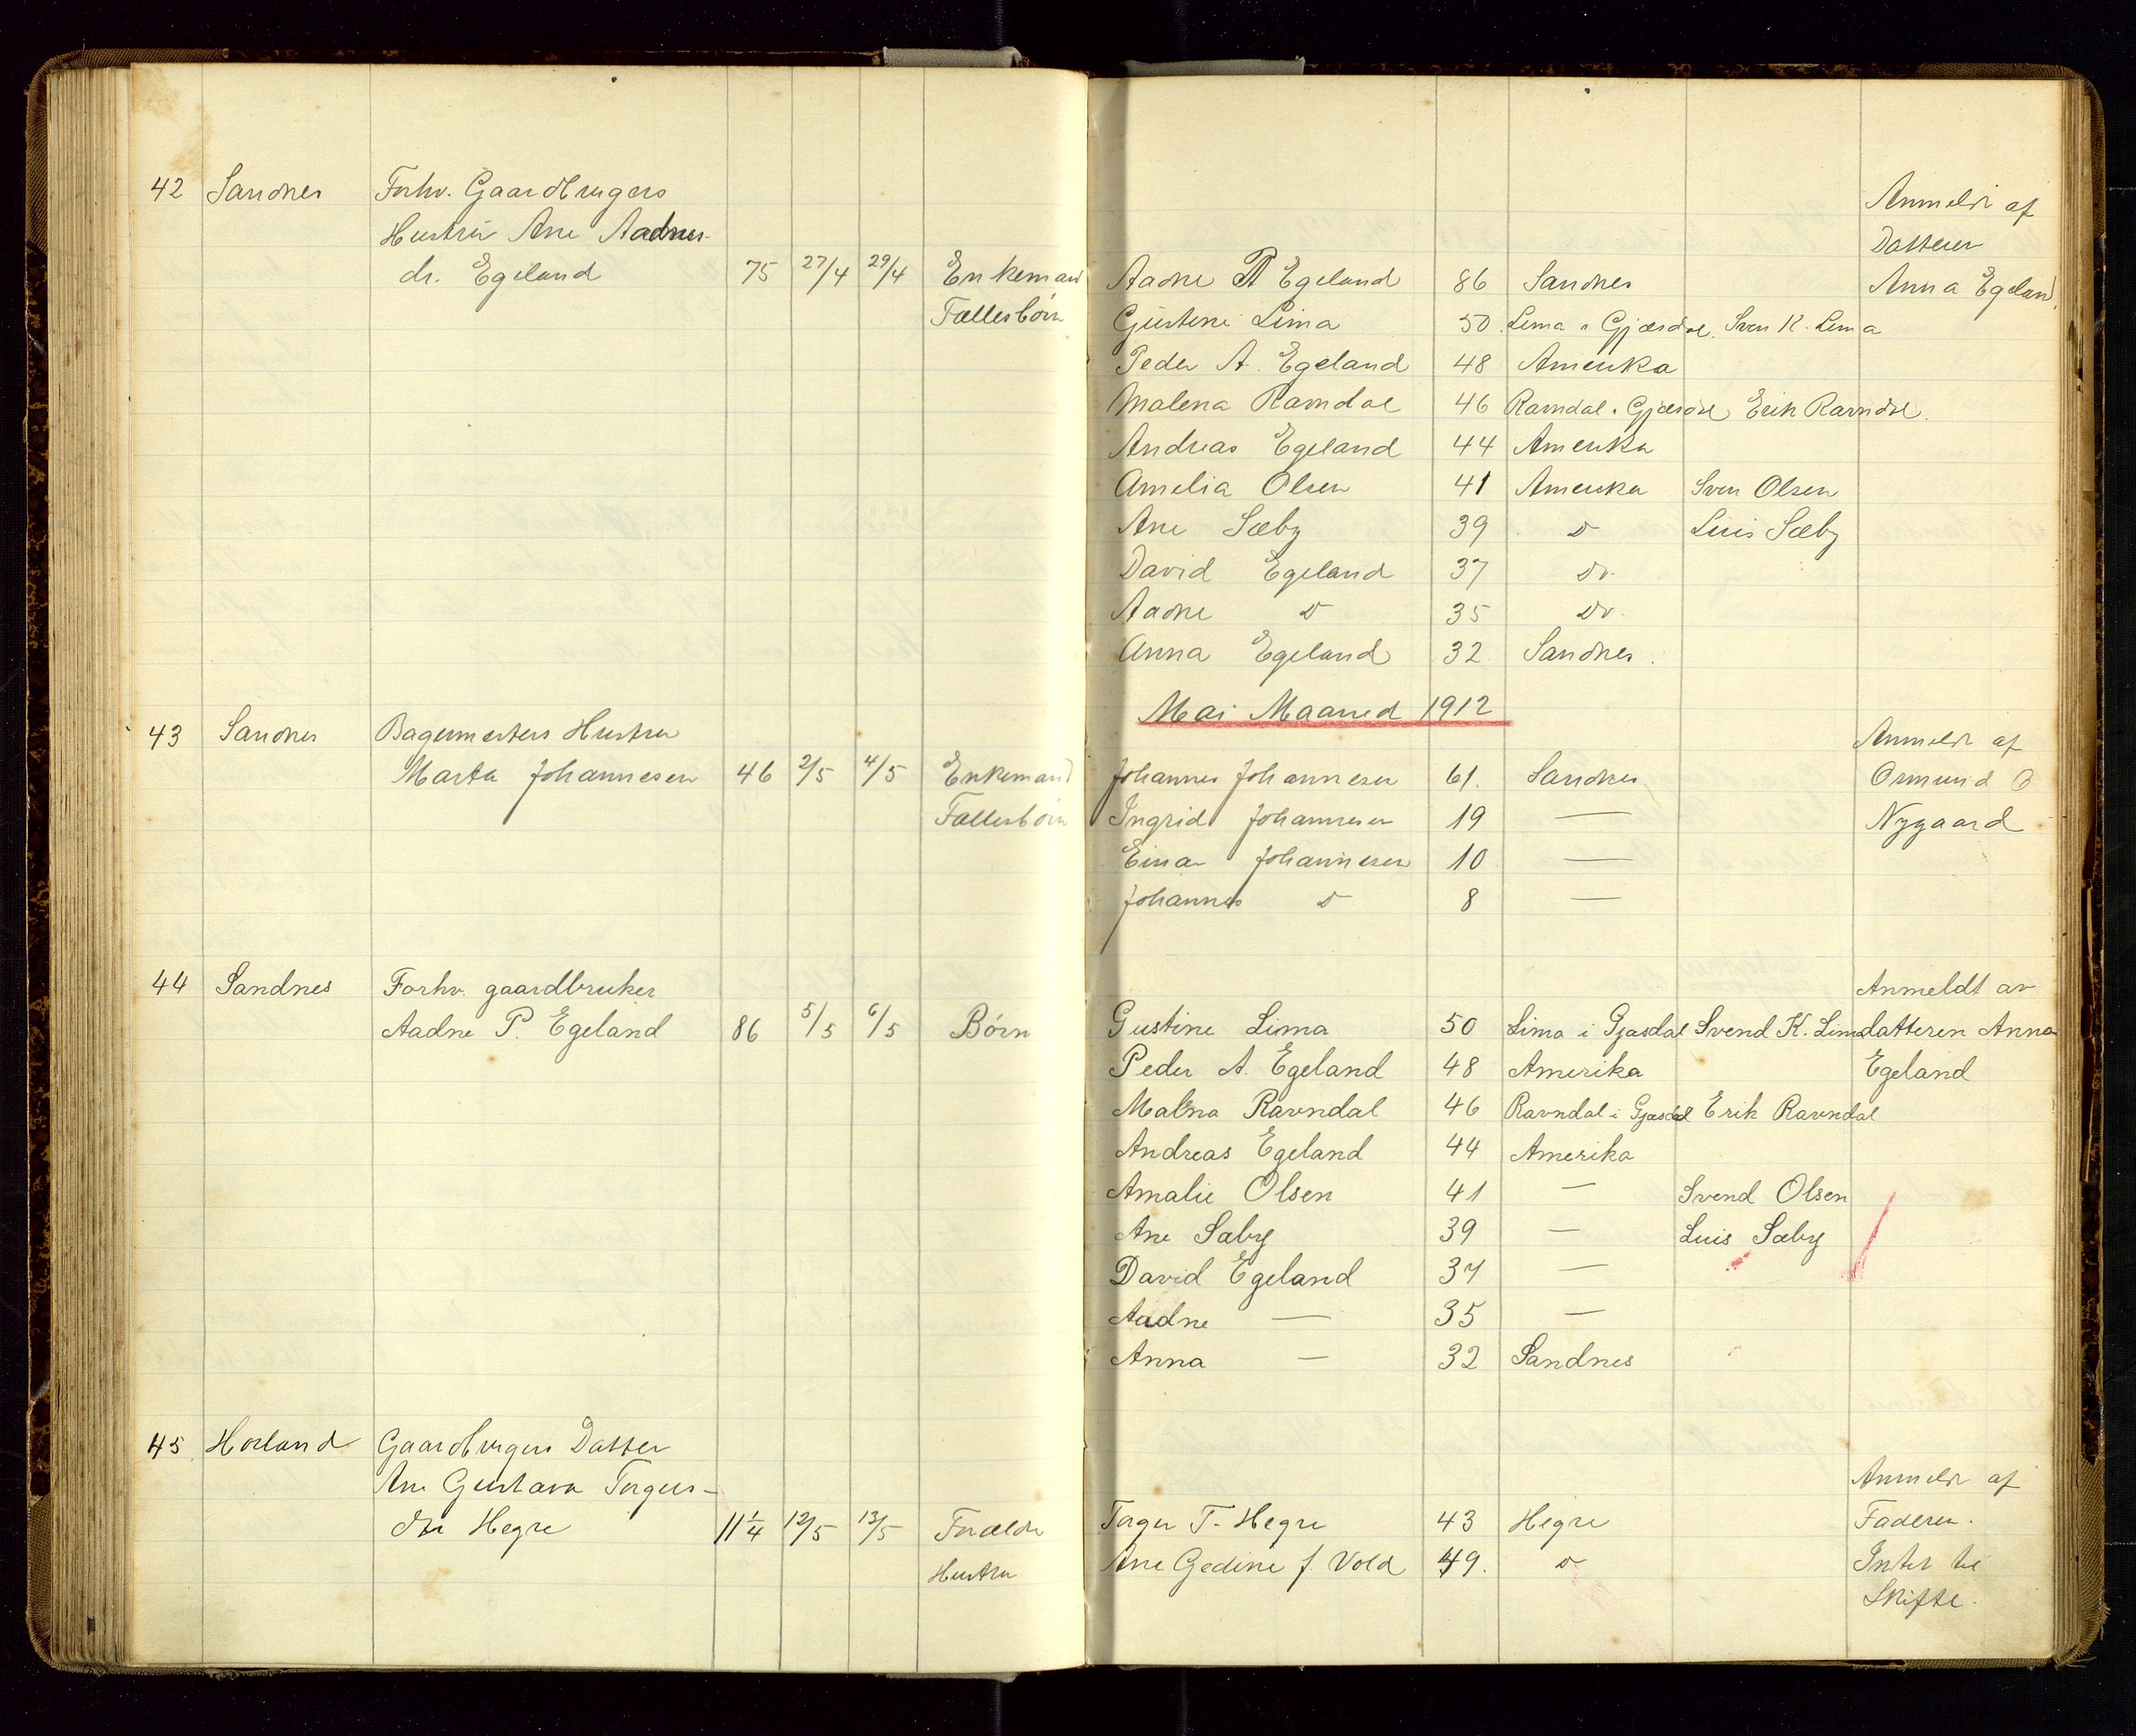 42 Sandnes Forhv. Gaardbrugers
Hustru Ane Aadnes-
dr. Egeland 75 27/4 29/4 Enkemand
Fællesbörn
Anmeldt af
Datteren
Anna Egeland
Aadne P Egeland 86 Sandnes
Gjustine Lima 50 Lima i Gjæsdal Sven K. Lima
Peder A. Egeland 48 Amerika
Malena Ravndal 46 Ravndal i Gjæsdal Erik Ravndal
Andreas Egeland 44 Amerika
Amelia Olsen 41 Amerika Sven Olsen
Ane Sæby 39 Do Luis Sæby
David Egeland 37 Do
Aadne Do 35 Do
Anna Egeland 32 Sandnes
Mai Maaned 1912
43 Sandnes Bagermesters Hustru
Marta Johannesen 46 2/5 4/5 Enkemand
Fællesbörn
Anmeldt af
Osmund
Nygaard
Johannes Johannesen 61 Sandnes
Ingrid Johannesen 19 —
Einar Johannesen 10 —
Johannes Do 8 —
44 Sandnes Forhv. gaardbruker
Aadne P. Egeland 86 5/5 6/5 Börn
Anmeldt av
datteren Anna
Egeland
Gustine Lima 50 Lima i Gjæsdal Svend K. Lima
Peder A. Egeland 48 Amerika
Malena Ravndal 46 Ravndal i Gjæsdal Erik Ravndal
Andreas Egeland 44 Amerika
Amalie Olsen 41 — Svend Olsen
Ane Sæby 39 — Luis Sæby
David Egeland 37 —
Aadne — 35 —
Anna — 32 Sandnes
45 Hörland Gaardbrugers Datter
Ane Gustava Torgers-
dtr Hegre 11 1/4 12/5 13/5 Forældre
Hustru
Anmeldt af
Faderen.
Intet til
Skifte.
Torger T. Hegre 43 Hegre
Ane Gedine f. Vold 49. Do